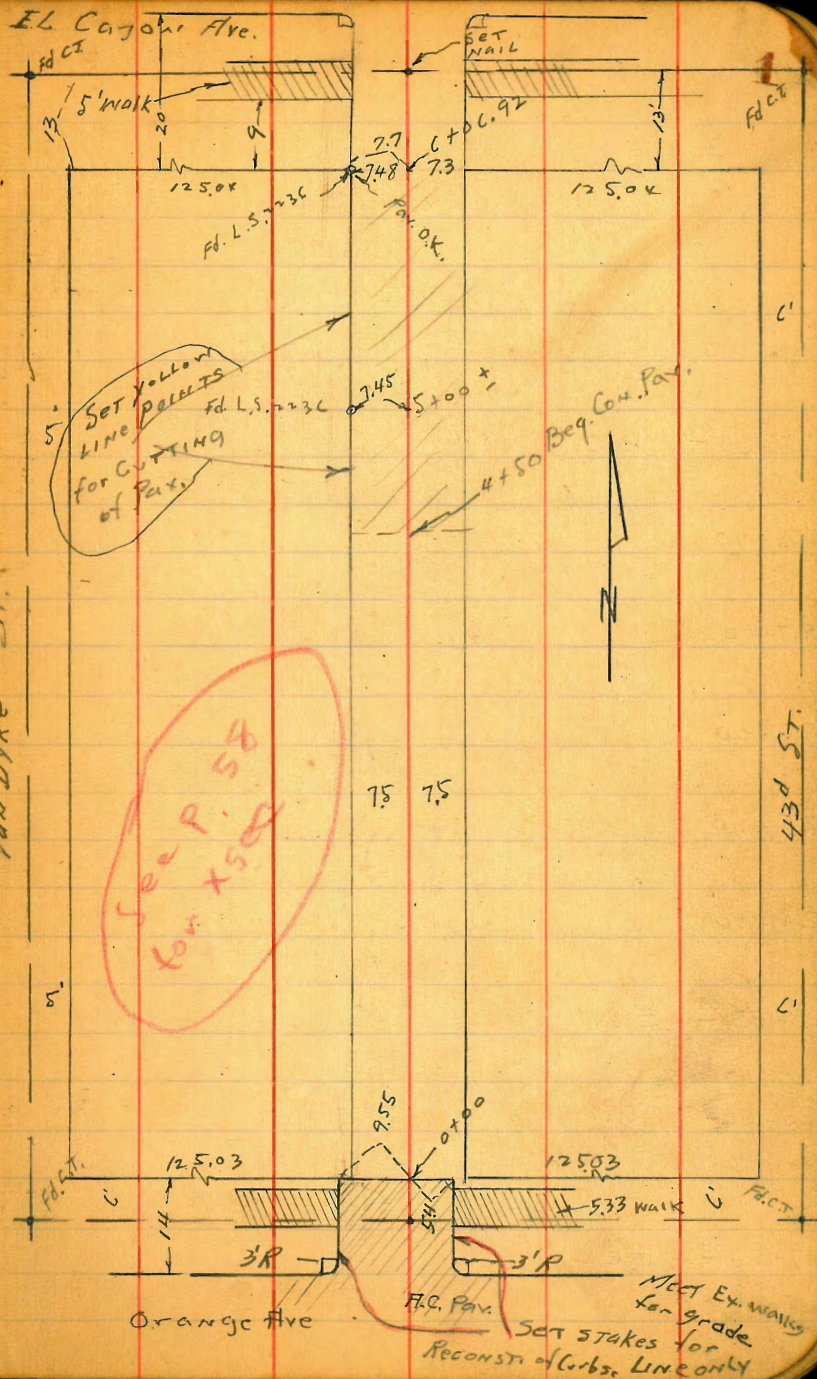 EL Cajon Ave.
Fd C.T.
SET
NAIL
1
Fd C.T.
5' walk
20'
9'
13'
13'
7.7
6+06.92
7.48
7.3
125.04
125.04
Fd. L.S. 2236
Pav. O.K.
6'
SET YELLOW
LINE POINTS
for CUTTING
of Pav.
Fd. L.S. 2236
7.45
5+00 ±
4+50 Beg. Con. Pav.
5'
N
See P. 58
for XSec
7.5
7.5
43d ST.
5'
6'
9.55
0+00
125.03
125.03
Fd. C.T.
6'
14
5.41
5.33 walk
6'
Fd. C.T.
3'R
3'R
A.C. Pav.
Orange Ave
Meet Ex. walks
for grade
SET STAKES for
Reconst. of Curbs. LINE ONLY